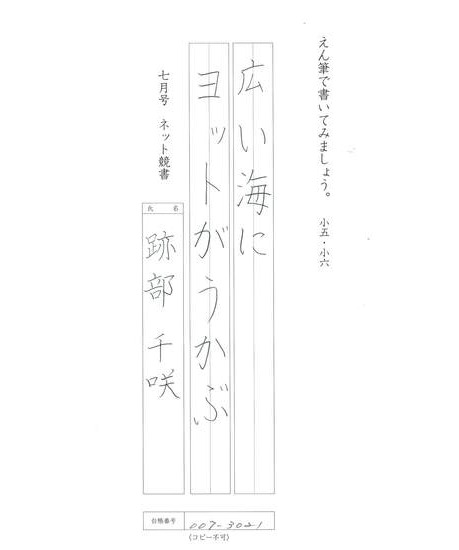 えん筆で書いてみましょう。 小五・小六
広い海に
ヨットがうかぶ
七月号 ネット競書
氏 名
跡部 千咲
台帳番号
007-3021
(コピー不可)